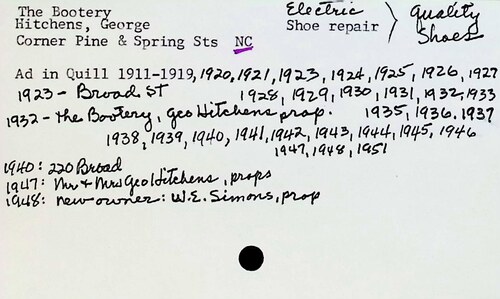 The Bootery
Hitchens, George
Corner Pine & Spring Sts NC
Electric
Shoe repair
Quality
Shoes
Ad in Quill 1911-1919, 1920, 1921, 1923, 1924, 1925, 1926, 1927
1923 - Broad St 1928, 1929, 1930, 1931, 1932, 1933
1932 - The Bootery, Geo Hitchens prop. 1935, 1936, 1937
1938, 1939, 1940, 1941, 1942, 1943, 1944, 1945, 1946
1947, 1948, 1951
1940: 220 Broad
1947: Mr & Mrs Geo Hitchens, props
1948: new owner: W.E. Simons, prop